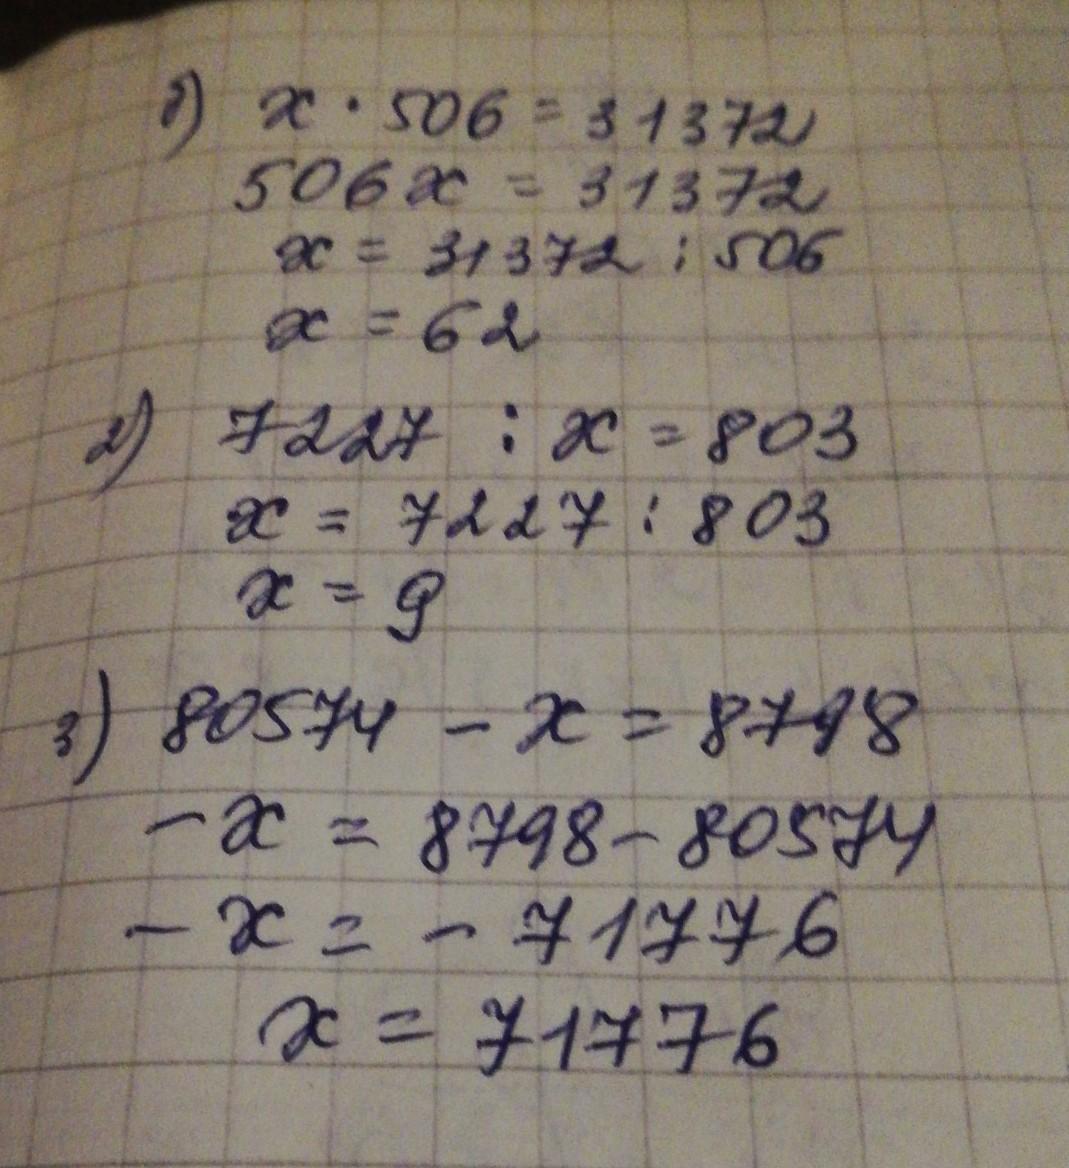 1) x · 506 = 31372
506x = 31372
x = 31372 : 506
x = 62
2) 7227 : x = 803
x = 7227 : 803
x = 9
3) 80574 - x = 8798
- x = 8798 - 80574
- x = - 71776
x = 71776